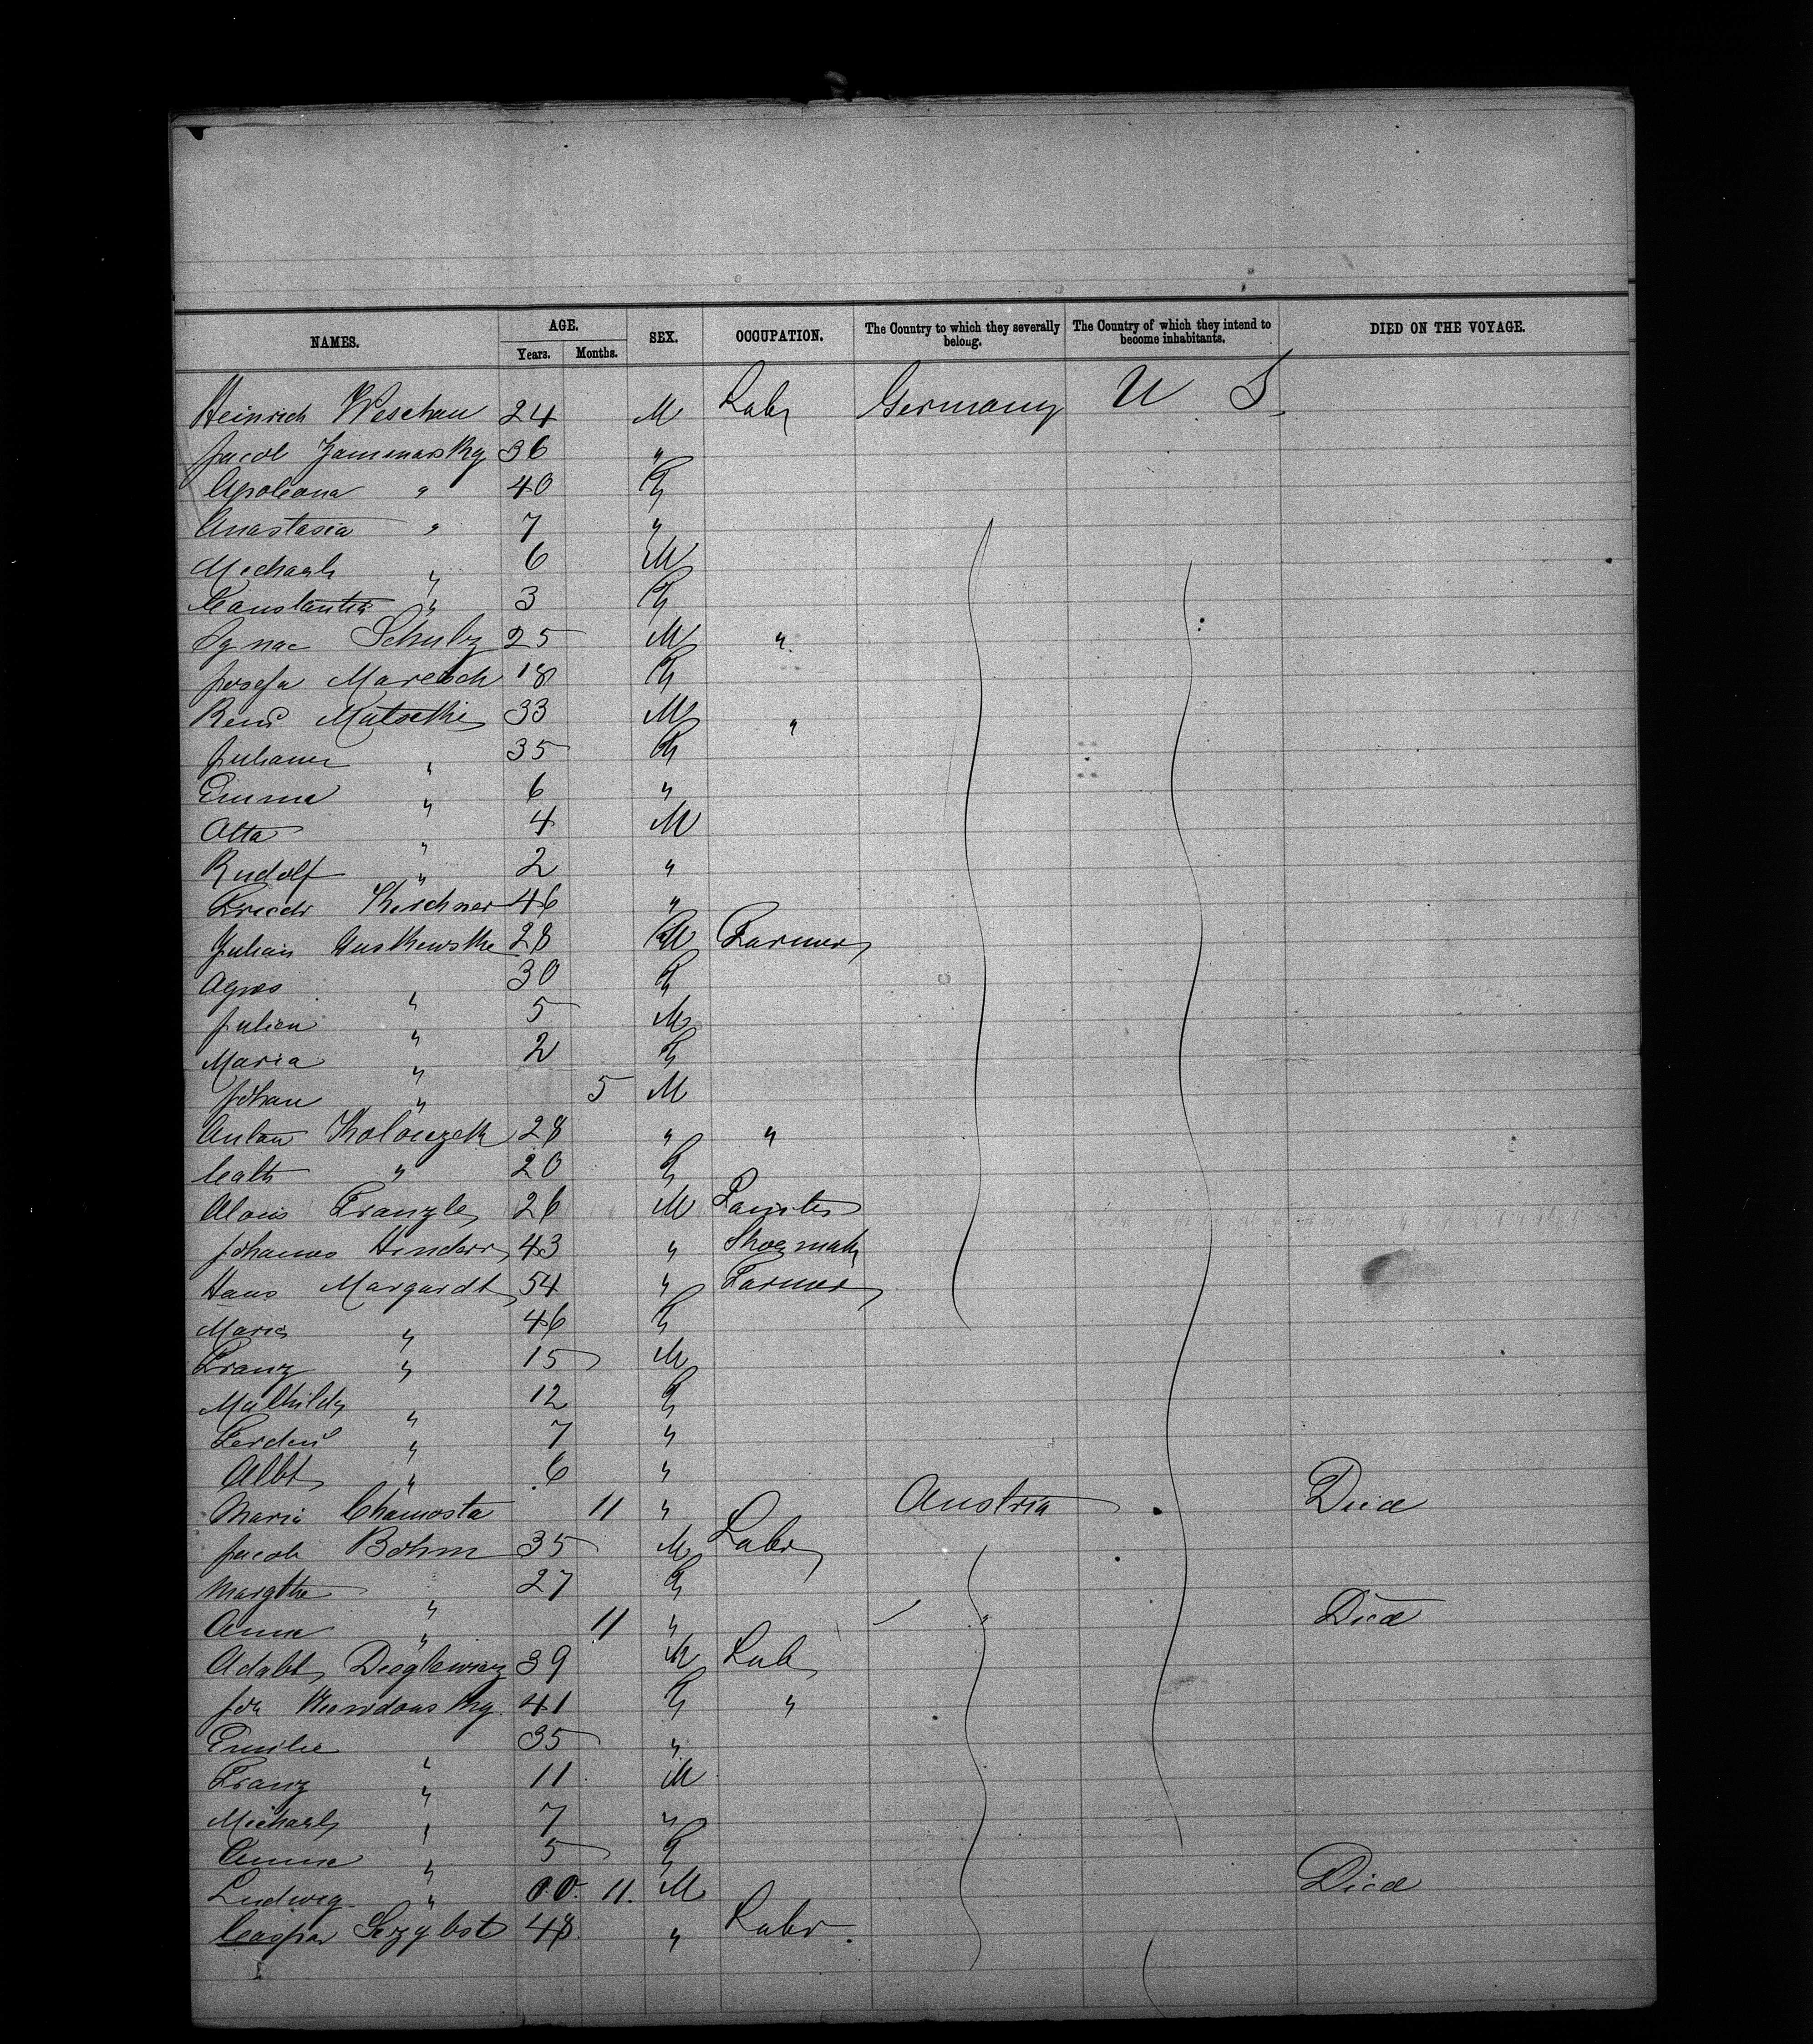 NAMES. AGE. SEX. OCCUPATION. The Country to which they severally belong. The Country of which they intend to become inhabitants. DIED ON THE VOYAGE.
Years. Months.
Heinrich Weschau 24 M Labr Germany U S
Jacob 36 "
Apoleona " 40 F
Anastasia " 7 "
Michael " 6 M
Constantia " 3 F
Ignac Schulz 25 M "
Josefa Maresch 18 F
Matschke 33 M "
Juliane " 35 F
Emma " 6 "
Otto " 4 M
Rudolf " 2 "
Friedr Kirschner 46 "
Julian 28 M Farmer
Agnes " 30 F
Julian " 5 M
Maria " 2 F
Johan " 5 M
Anton 28 " "
Cath " 20 F
Alois Franzle 26 M Painter
Johannes 43 " Shoemak
Hans Margardt 54 " Farmer
Maria " 46 F
Franz " 15 M
Mathilde " 12 F
Ferdin " 7 "
Albt " 6 "
Maria Chamosta 11 " Austria Died
Jacob Bohm 35 M Labr
Margthe " 27 F
Anna " 11 " " Died
Adalbt 39 M Lab
Joh 41 F "
Emilie " 35 "
Franz " 11 M
Michael " 7 "
Anna " 5 F
Ludwig " 0.0. 11. M Died
Caspar 48 " Labr.